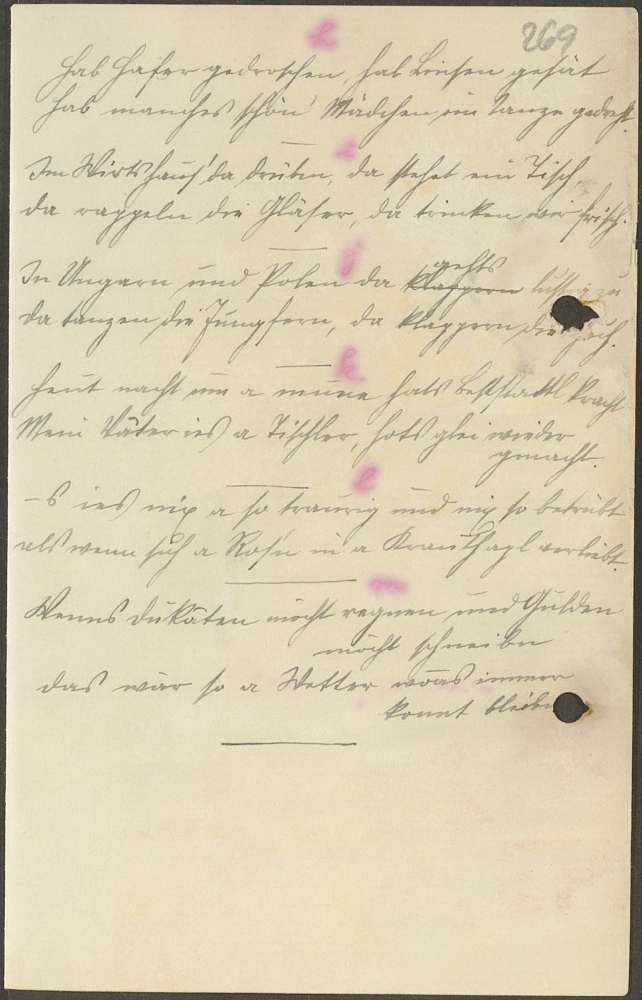 h
269
Hab Hafer gedroschen, hab Linsen gesät
hab manches schön' Mädchen im Tanze gedreht.
i
Im Wirtshaus' da drüben, da stehet ein Tisch,
da rappeln die Gläser, da trinken wir frisch.
j
gehts
In Ungarn und Polen da klappern lustig zu
da tanzen die Jungfern, da klappern die
k
Heut nacht um a neune hats Bettstattl kracht
Mein Vater ies a Tischler, hots glei wieder
gmacht.
l
-s ies nix a so traurig und nix so betrübt
als wenn sich a Ros'n in a Krauthapl verliebt.
m
Wenns Dukaten möcht regnen und Gulden
möcht schneibn
das wär so a Wetter woas immer
konnt bleibn